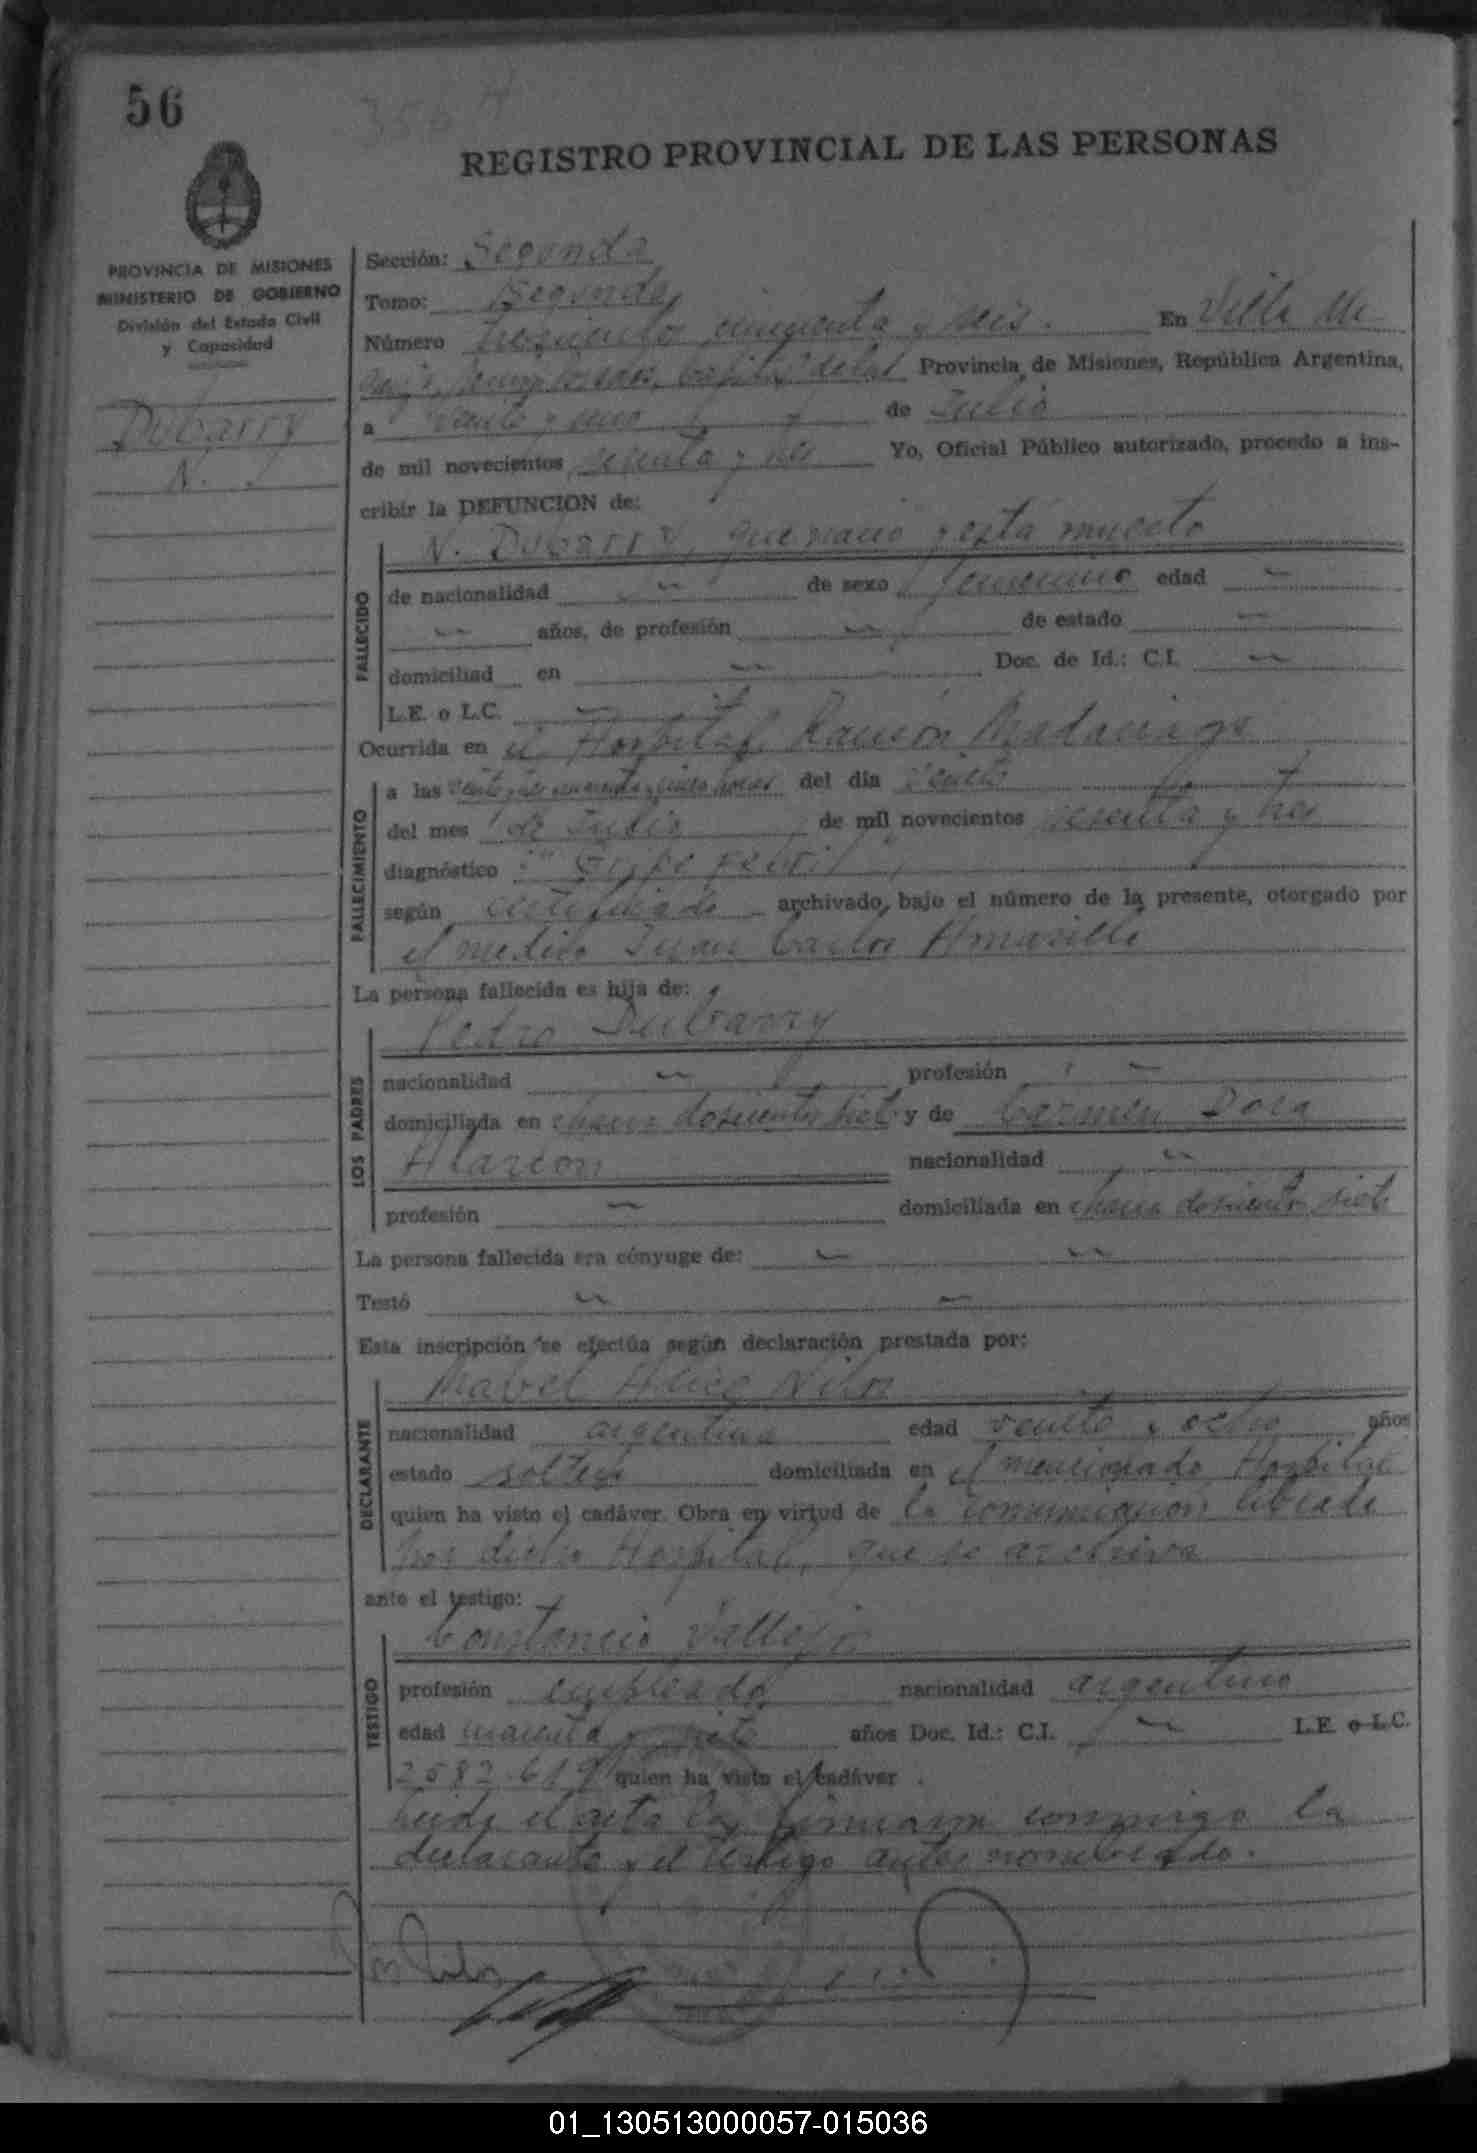 56
356 A
REGISTRO PROVINCIAL DE LAS PERSONAS
PROVINCIA DE MISIONES
MINISTERIO DE GOBIERNO
División del Estado Civil
y Capacidad
Dubarry
N.
Sección: Segunda
Tomo: Segundo
Número trescientos cincuenta y seis. En Villa
capital de la Provincia de Misiones, República Argentina,
a veinte y uno de Julio
de mil novecientos sesenta y tres Yo, Oficial Público autorizado, procedo a ins-
cribir la DEFUNCION de:
N. Dubarry, que nació y está muerto
FALLECIDO
de nacionalidad de sexo femenino edad
años, de profesión de estado
domiciliad en Doc. de Id.: C.I.
L.E. o L.C.
Ocurrida en el Hospital Ramón Madariaga
FALLECIMIENTO
a las veinte y tres cuarenta y cinco horas del día veinte
del mes de Julio de mil novecientos sesenta y tres
diagnóstico : "
según certificado archivado, bajo el número de la presente, otorgado por
el medico Juan Carlos Amarilla
La persona fallecida es hija de:
LOS PADRES
Pedro Dubarry
nacionalidad profesión
domiciliada en chacra doscientos siete y de Carmen Dora
Alarcon nacionalidad
profesión domiciliada en chacra doscientos siete
La persona fallecida era cónyuge de:
Testó
Esta inscripción se efectúa según declaración prestada por:
DECLARANTE
Mabel Alice
nacionalidad argentina edad veinte y ocho años
estado soltera domiciliada en el mencionado Hospital
quien ha visto el cadáver. Obra en virtud de la comunicación librada
por dicho Hospital, que se archiva
ante el testigo:
TESTIGO
Constancio Vallejos
profesión empleado nacionalidad argentino
edad cuarenta y siete años Doc. Id.: C.I. L.E. o L.C.
2582.619 quien ha visto el cadáver.
Leida el acta la firman conmigo la
declarante y el testigo antes nombrado.
01_130513000057-015036